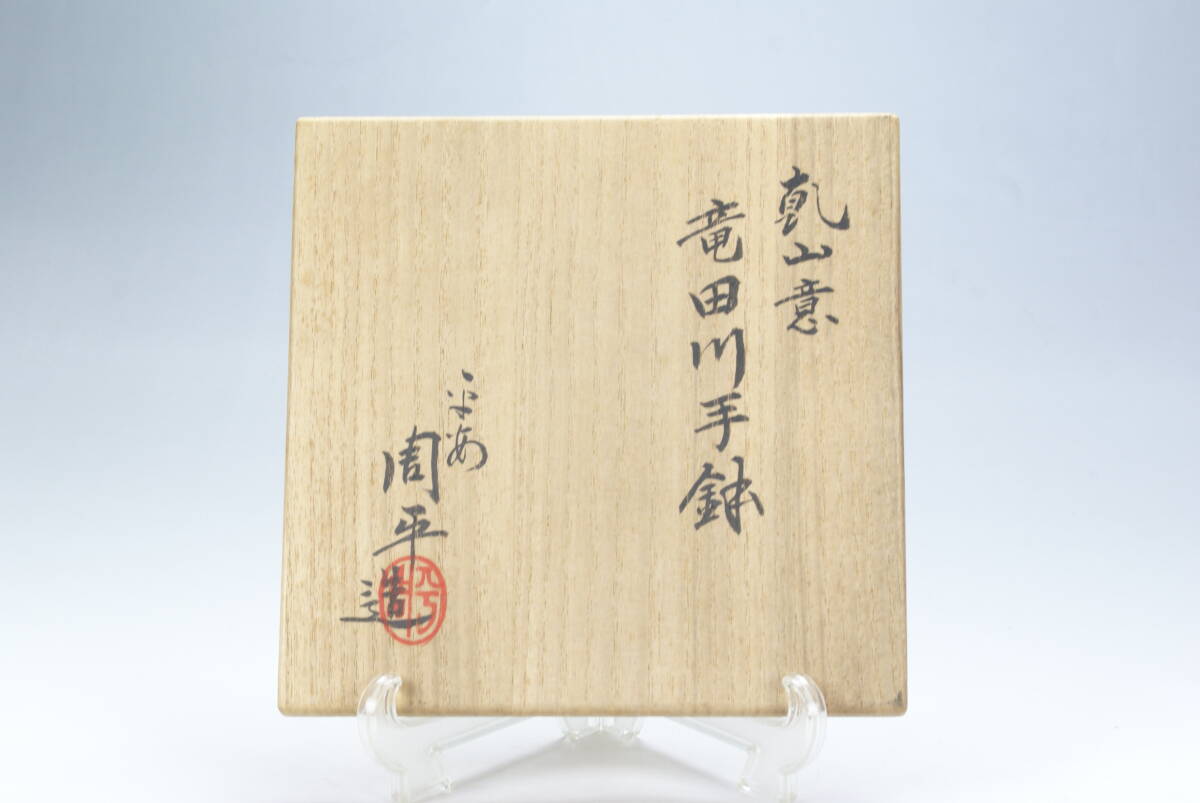 乾山意
竜田川手鉢
平安
周平造